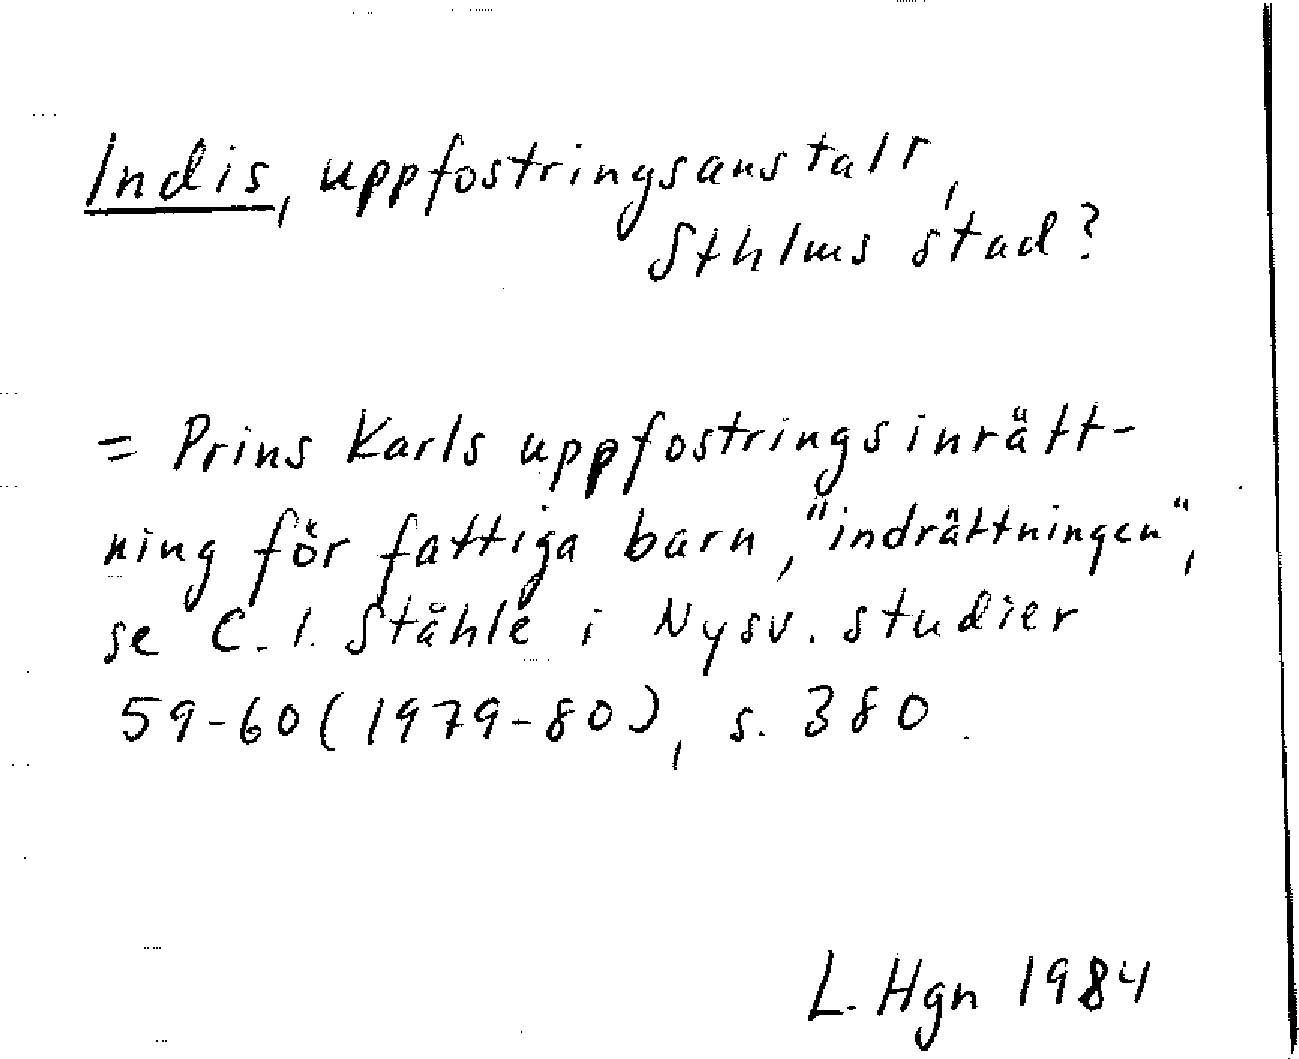 Indis, uppfostringsanstalt,
Sthlms stad?
= Prins Karls uppfostringsinrätt-
ning för fattiga barn, "indrättningen",
se C. I. Ståhle i Nysv. studier
59-60 (1979-80), s. 380.
L. Hgn 1984